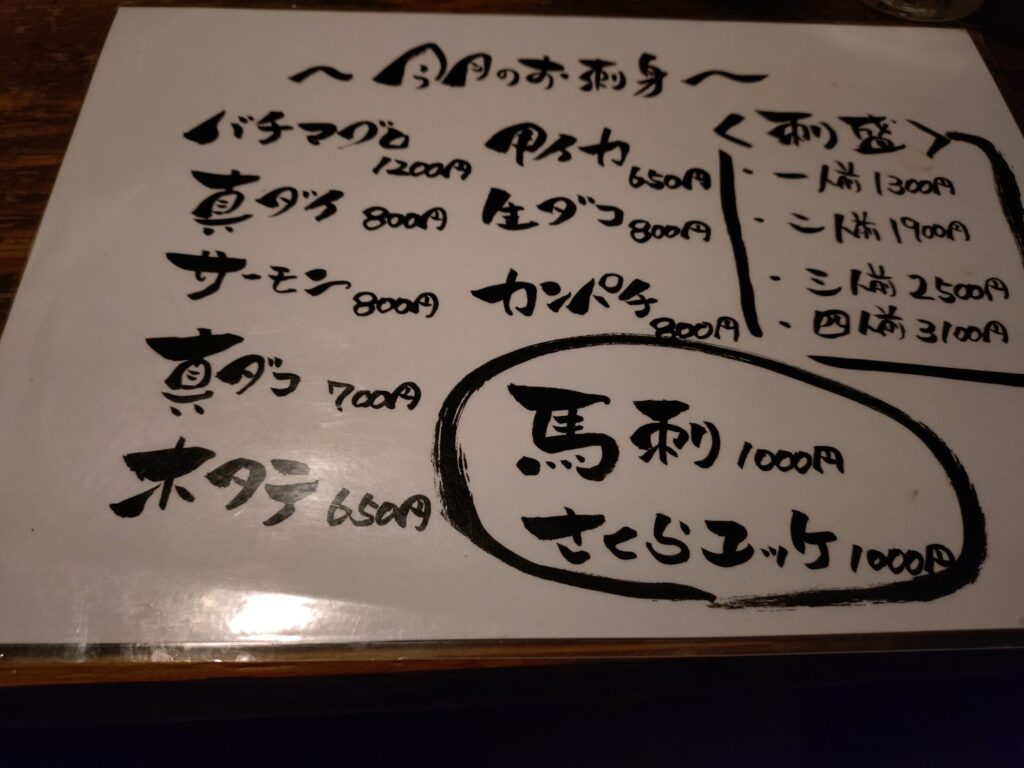 ～今月のお刺身～
バチマグロ 1200円
真ダイ 800円
サーモン 800円
真ダコ 700円
ホタテ 650円
甲イカ 650円
生ダコ 800円
カンパチ 800円
〈刺盛〉
・一人前 1300円
・二人前 1900円
・三人前 2500円
・四人前 3100円
馬刺 1000円
さくらユッケ 1000円